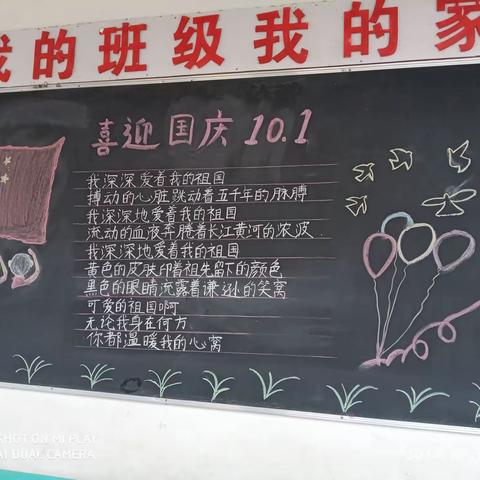 我的班级我的家
喜迎国庆10.1
我深深爱着我的祖国
搏动的心脏跳动着五千年的脉膊
我深深地爱着我的祖国
流动的血液奔腾着长江黄河的浓波
我深深地爱着我的祖国
黄色的皮肤印着祖先留下的颜色
黑色的眼睛流露着谦逊的笑窝
可爱的祖国啊
无论我身在何方
你都温暖我的心窝
SHOT ON MI PLAY
AI DUAL CAMERA